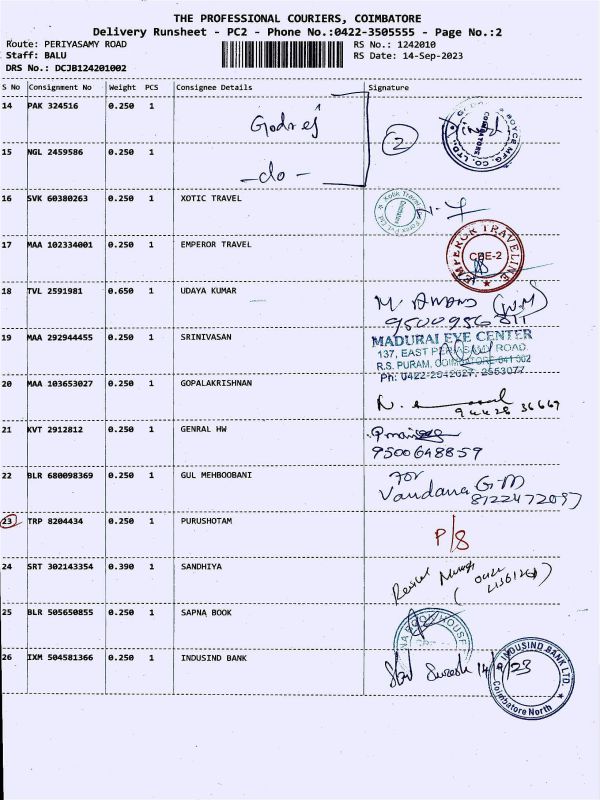 THE PROFESSIONAL COURIERS, COIMBATORE
Delivery Runsheet - PC2 - Phone No.:0422-3505555 - Page No.:2
Route: PERIYASAMY ROAD RS No.: 1242010
Staff: BALU RS Date: 14-Sep-2023
DRS No.: DCJB124201002
S No Consignment No Weight PCS Consignee Details Signature
14 PAK 324516 0.250 1 Godrej
2
15 NGL 2459586 0.250 1 -do-
BOYCE MFG. CO. LTD.
COIMBATORE
16 SVK 60380263 0.250 1 XOTIC TRAVEL
Xotic Travel
17 MAA 102334001 0.250 1 EMPEROR TRAVEL
EMPEROR TRAVELINE
CBE-2
18 TVL 2591981 0.650 1 UDAYA KUMAR
19 MAA 292944455 0.250 1 SRINIVASAN
MADURAI EYE CENTER
137, EAST PERIASAMY ROAD
R.S. PURAM, COIMBATORE-641 002
Ph: 0422-2542627, 2553077
20 MAA 103653027 0.250 1 GOPALAKRISHNAN
94428 36669
21 KVT 2912812 0.250 1 GENRAL HW
9500648859
22 BLR 680098369 0.250 1 GUL MEHBOOBANI
for
Vandana G M
8122472097
23 TRP 8204434 0.250 1 PURUSHOTAM
P/8
24 SRT 302143354 0.390 1 SANDHIYA
25 BLR 505650855 0.250 1 SAPNA BOOK
BOOK HOUSE
26 IXM 504581366 0.250 1 INDUSIND BANK
Suresh 14/9/23
INDUSIND BANK LTD.
Coimbatore North